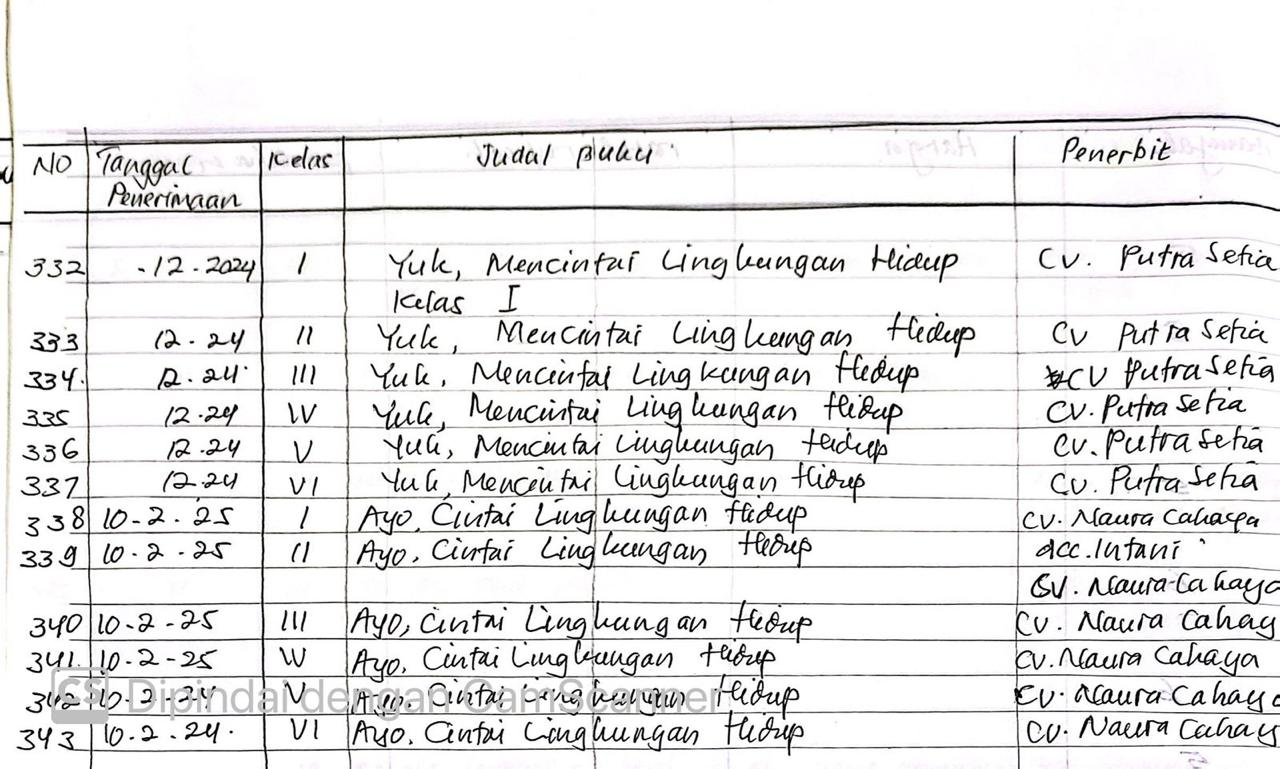 NO Tanggal Penerimaan Kelas Judul Buku Penerbit
332 -12.2024 I Yuk, Mencintai Lingkungan Hidup CV. Putra Setia
Kelas I
333 12.24 II Yuk, Mencintai Lingkungan Hidup CV Putra Setia
334. 12.24 III Yuk, Mencintai Lingkungan Hidup CV Putra Setia
335 12.24 IV Yuk, Mencintai Lingkungan Hidup CV. Putra Setia
336 12.24 V Yuk, Mencintai Lingkungan Hidup CV. Putra Setia
337 12.24 VI Yuk, Mencintai Lingkungan Hidup CV. Putra Setia
338 10-2.25 I Ayo, Cintai Lingkungan Hidup CV. Naura Cahaya
339 10-2-25 II Ayo, Cintai Lingkungan Hidup acc. Intani
CV. Naura Cahaya
340 10-2-25 III Ayo, Cintai Lingkungan Hidup CV. Naura Cahay
341. 10-2-25 IV Ayo, Cintai Lingkungan Hidup CV. Naura Cahaya
342 10-2-24 V Ayo, Cintai Lingkungan Hidup CV. Naura Cahaya
CS Dipindai dengan CamScanner
343 10.2.24. VI Ayo, Cintai Lingkungan Hidup CV. Naura Cahay